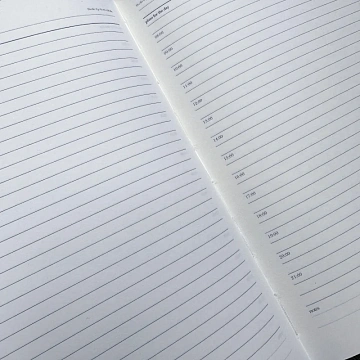 plan for the day
08:00
09:00
10:00
11:00
12:00
13:00
14:00
15:00
16:00
17:00
18:00
19:00
20:00
21:00
notes